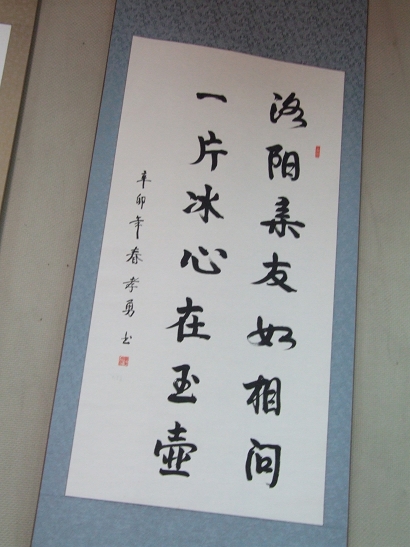 洛阳亲友如相问
一片冰心在玉壶
辛卯年春孝勇书